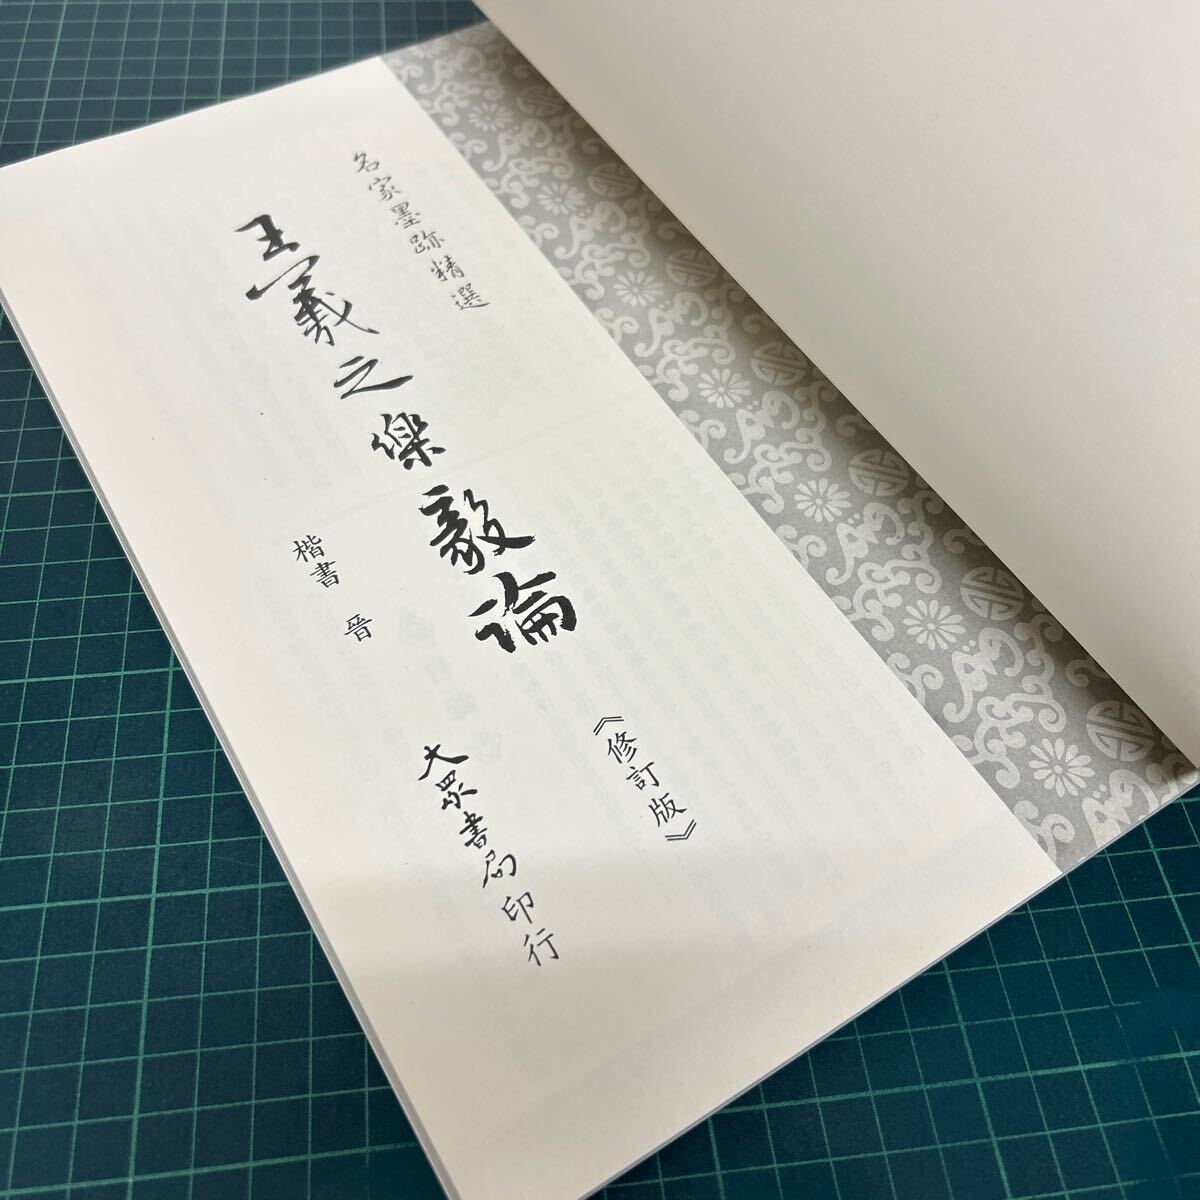 名家墨跡精選
王羲之樂毅論
《修訂版》
楷書 晉
大眾書局印行